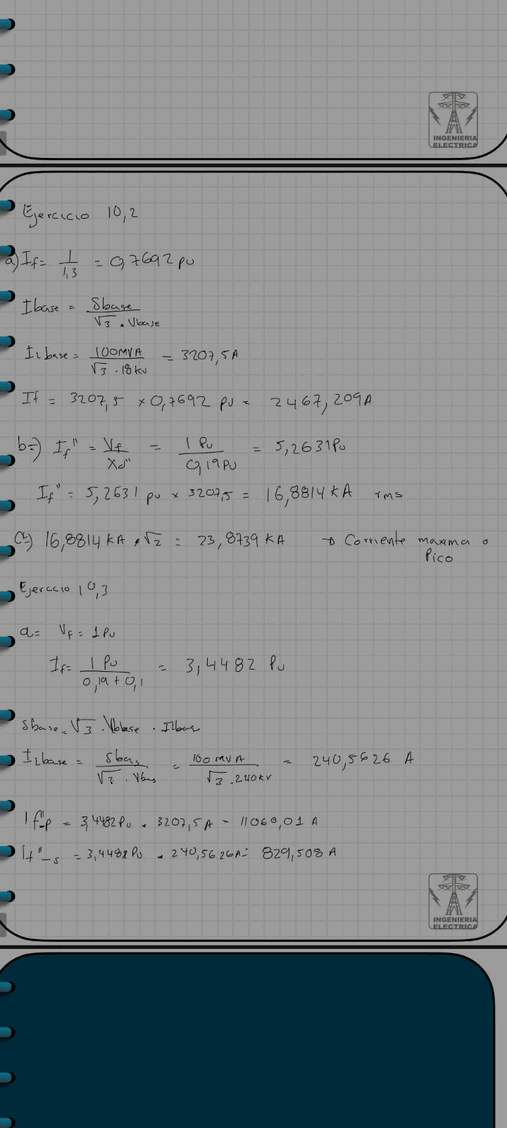 INGENIERIA
ELECTRICA
Ejercicio 10,2
a) If = 1/1,3 = 0,7692 pu
Ibase = Sbase/√3 . Vbase
ILbase = 100MVA/√3 . 18kv = 3207,5A
If = 3207,5 × 0,7692 pu = 2467,209A
b=) If" = Vf/Xd" = 1 Pu/0,19 PU = 5,2631 PU
If" = 5,2631 pu × 3207,5 = 16,8814 kA rms
C=) 16,8814 KA * √2 = 23,8739 KA → Corriente maxma o
Pico
Ejerccio 10,3
a= VF = 1 PU
If = 1 PU/0,19 + 0,1 = 3,4482 PU
Sbase = √3 . Vbbase . ILbas
ILbase = Sbas/√3 . Vbas = 100 MVA/√3 . 240 kv = 240,5626 A
If"-p = 3,4482 PU * 3207,5 A = 11060,01 A
If"-s = 3,4482 PU * 240,5626A = 829,508 A
INGENIERIA
ELECTRICA